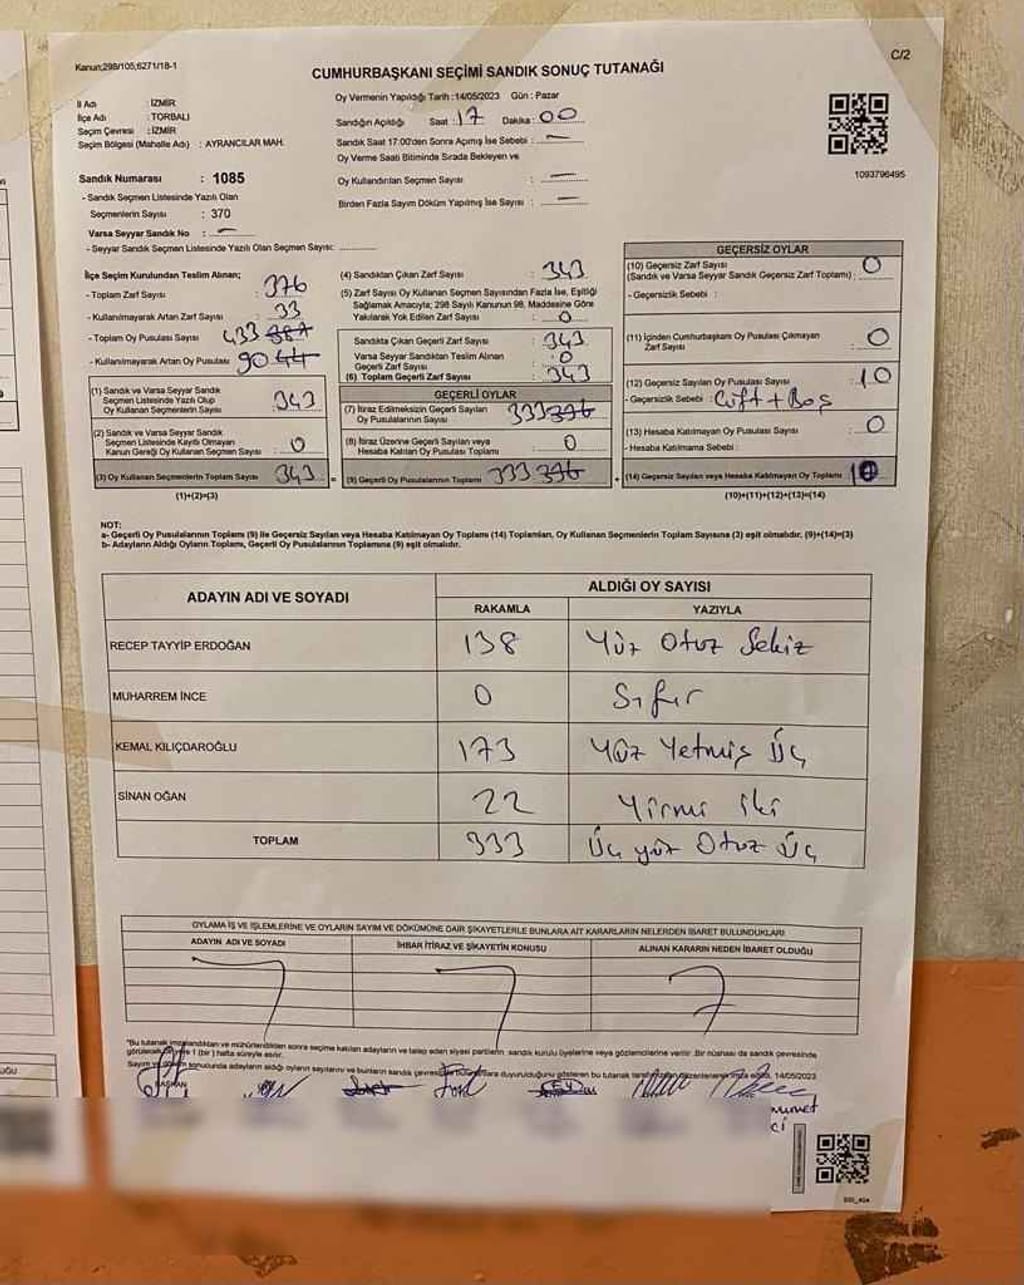 Kanun;298/105;6271/18-1
C/2
CUMHURBAŞKANI SEÇİMİ SANDIK SONUÇ TUTANAĞI
İl Adı : İZMİR
İlçe Adı : TORBALI
Seçim Çevresi : İZMİR
Seçim Bölgesi (Mahalle Adı) : AYRANCILAR MAH.
Sandık Numarası : 1085
- Sandık Seçmen Listesinde Yazılı Olan
Seçmenlerin Sayısı : 370
Varsa Seyyar Sandık No : -
- Seyyar Sandık Seçmen Listesinde Yazılı Olan Seçmen Sayısı:
Oy Vermenin Yapıldığı Tarih :14/05/2023 Gün : Pazar
Sandığın Açıldığı Saat : 17 Dakika : 00
Sandık Saat 17.00'den Sonra Açımış İse Sebebi : -
Oy Verme Saati Bitiminde Sırada Bekleyen ve
Oy Kullandırılan Seçmen Sayısı : -
Birden Fazla Sayım Döküm Yapılmış İse Sayısı : -
1093796495
İlçe Seçim Kurulundan Teslim Alınan;
- Toplam Zarf Sayısı : 376
- Kullanılmayarak Artan Zarf Sayısı : 33
- Toplam Oy Pusulası Sayısı : 433 387
- Kullanılmayarak Artan Oy Pusulası : 90 44
(1) Sandık ve Varsa Seyyar Sandık
Seçmen Listesinde Yazılı Olup
Oy Kullanan Seçmenlerin Sayısı : 343
(2) Sandık ve Varsa Seyyar Sandık
Seçmen Listesinde Kayıtlı Olmayan
Kanun Gereği Oy Kullanan Seçmen Sayısı : 0
(3) Oy Kullanan Seçmenlerin Toplam Sayısı : 343
(1)+(2)=(3)
(4) Sandıktan Çıkan Zarf Sayısı : 343
(5) Zarf Sayısı Oy Kullanan Seçmen Sayısından Fazla İse, Eşitliği
Sağlamak Amacıyla; 298 Sayılı Kanunun 98. Maddesine Göre
Yakılarak Yok Edilen Zarf Sayısı : 0
Sandıkta Çıkan Geçerli Zarf Sayısı : 343
Varsa Seyyar Sandıktan Teslim Alınan
Geçerli Zarf Sayısı : 0
(6) Toplam Geçerli Zarf Sayısı : 343
GEÇERLİ OYLAR
(7) İtiraz Edilmeksizin Geçerli Sayılan
Oy Pusulalarının Sayısı : 333 376
(8) İtiraz Üzerine Geçerli Sayılan veya
Hesaba Katılan Oy Pusulası Toplamı : 0
(9) Geçerli Oy Pusulalarının Toplamı : 333 376
GEÇERSİZ OYLAR
(10) Geçersiz Zarf Sayısı : 0
(Sandık ve Varsa Seyyar Sandık Geçersiz Zarf Toplamı) :
- Geçersizlik Sebebi :
(11) İçinden Cumhurbaşkanı Oy Pusulası Çıkmayan
Zarf Sayısı : 0
(12) Geçersiz Sayılan Oy Pusulası Sayısı : 10
- Geçersizlik Sebebi : Çift + Boş
(13) Hesaba Katılmayan Oy Pusulası Sayısı : 0
- Hesaba Katılmama Sebebi :
(14) Geçersiz Sayılan veya Hesaba Katılmayan Oy Toplamı : 10
(10)+(11)+(12)+(13)=(14)
NOT:
a- Geçerli Oy Pusulalarının Toplamı (9) ile Geçersiz Sayılan veya Hesaba Katılmayan Oy Toplamı (14) Toplamları, Oy Kullanan Seçmenlerin Toplam Sayısına (3) eşit olmalıdır. (9)+(14)=(3)
b- Adayların Aldığı Oyların Toplamı, Geçerli Oy Pusulalarının Toplamına (9) eşit olmalıdır.
ADAYIN ADI VE SOYADI ALDIĞI OY SAYISI
RAKAMLA YAZIYLA
RECEP TAYYİP ERDOĞAN 138 Yüz Otuz Sekiz
MUHARREM İNCE 0 Sıfır
KEMAL KILIÇDAROĞLU 173 Yüz Yetmiş Üç
SİNAN OĞAN 22 Yirmi iki
TOPLAM 333 Üç yüz Otuz Üç
OYLAMA İŞ VE İŞLEMLERİNE VE OYLARIN SAYIM VE DÖKÜMÜNE DAİR ŞİKAYETLERLE BUNLARA AİT KARARLARIN NELERDEN İBARET BULUNDUKLARI
ADAYIN ADI VE SOYADI İHBAR İTİRAZ VE ŞİKAYETİN KONUSU ALINAN KARARIN NEDEN İBARET OLDUĞU
"Bu tutanak imzalandıktan ve mühürlendikten sonra seçime katılan adayların ve talep eden siyasi partilerin sandık kurulu üyelerine veya gözlemcilerine verilir. Bir nüshası da sandık çevresinde
1 (bir) hafta süreyle asılır.
Sayım ve döküm sonucunda adayların aldığı oyların sayılarını ve bunların sandık 14/05/2023
BAŞKAN